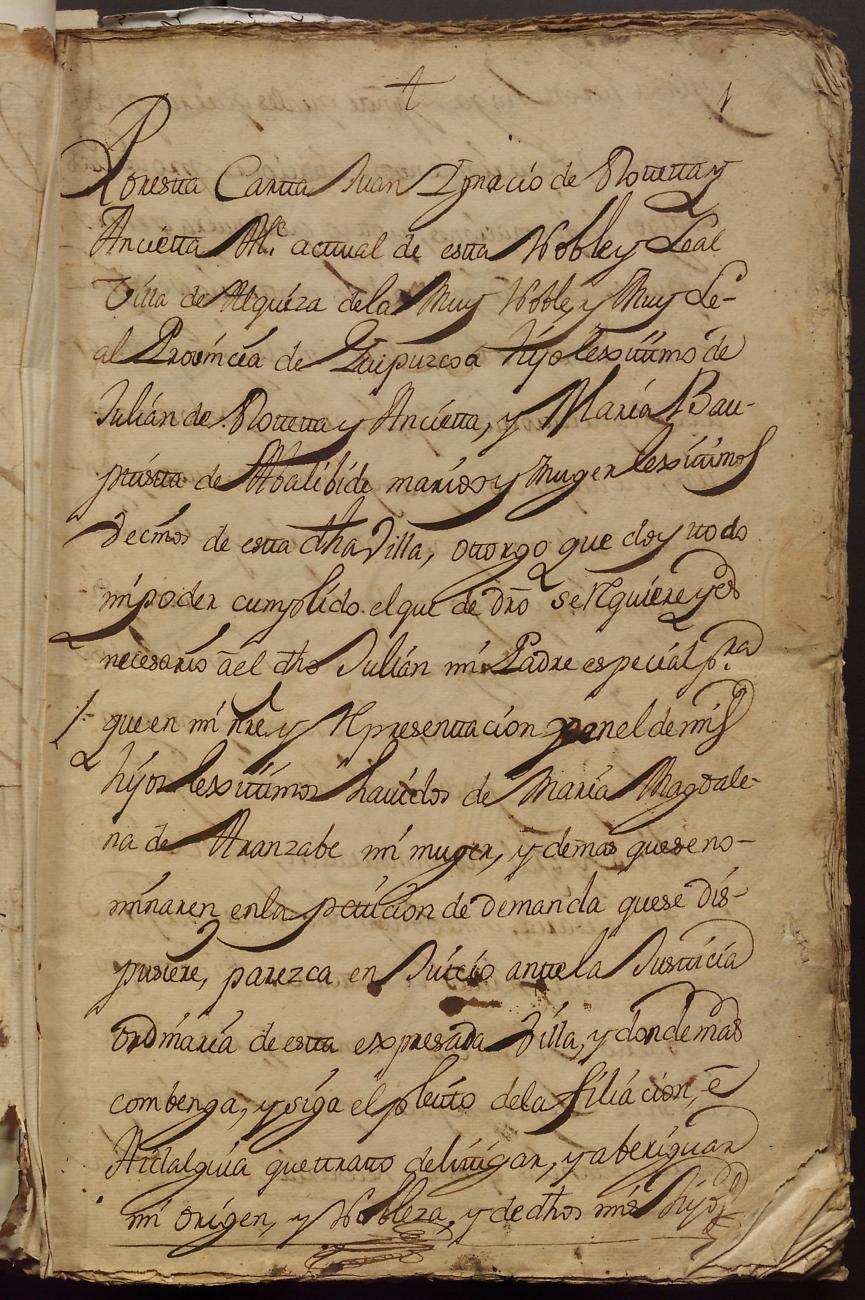 †
1
Por estta Cartta Juan Ygnacio de Rotetta y
Ancietta Alc.e acttual de estta Noble y Leal
Villa de Alquiza dela Muy Noble, y Muy Le-
al Província de Guipuzcoa hijo lexittimo de
Julián de Rotetta y Ancietta, y María Bau-
ptistta de Abalibide marido y muger lexittimos
vecinos de estta dha Villa, ottorgo que doy ttodo
mi poder cumplido el que de dro se rrequiere y es
necesario ael dho Julián mi Padre especial p.ra
que en mi nre. y rrepresenttación y en el de mis
hijos lexittimos havidos de María Magdale-
na de Aranzabe mi muger, y demas que se no-
minaren enla petticion de demanda que se dis-
pusiere, parezca en Juicio antte la Justticia
ordinaria de estta expresada Villa, y donde mas
combenga, y siga el pleitto dela filiación, é
Hidalguia que tratto de littigar, y aberiguar
mi origen, y Nobleza, y de dhos mis hijos